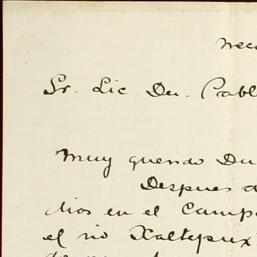 Sr. Lic. Du. Pabl
Muy querido Du
Despues d
dios en el Camp
el rio Xaltepux